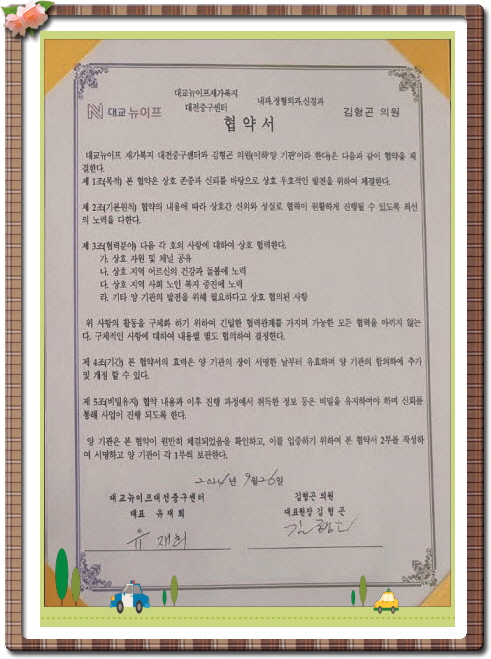 대교뉴이프재가복지
대전중구센터
내과.정형외과.신경과
대교 뉴이프
김형곤 의원
협 약 서
대교뉴이프 재가복지 대전중구센터와 김형곤 의원(이하'양 기관'이라 한다)은 다음과 같이 협약을 체
결한다.
제 1조(목적) 본 협약은 상호 존중과 신뢰를 바탕으로 상호 우호적인 발전을 위하여 체결한다.
제 2조(기본원칙) 협약의 내용에 따라 상호간 신의와 성실로 협력이 원활하게 진행될 수 있도록 최선
의 노력을 다한다.
제 3조(협력분야) 다음 각 호의 사항에 대하여 상호 협력한다.
가. 상호 자원 및 채널 공유
나. 상호 지역 어르신의 건강과 돌봄에 노력
다. 상호 지역 사회 노인 복지 증진에 노력
라. 기타 양 기관의 발전을 위해 필요하다고 상호 협의된 사항
위 사항의 활동을 구체화 하기 위하여 긴밀한 협력관계를 가지며 가능한 모든 협력을 아끼지 않는
다. 구체적인 사항에 대하여 내용별 별도 협의하여 결정한다.
제 4조(기간) 본 협약서의 효력은 양 기관의 장이 서명한 날부터 유효하며 양 기관의 합의하에 추가
및 개정 할 수 있다.
제 5조(비밀유지) 협약 내용과 이후 진행 과정에서 취득한 정보 등은 비밀을 유지하여야 하며 신뢰를
통해 사업이 진행 되도록 한다.
양 기관은 본 협약이 원만히 체결되었음을 확인하고, 이를 입증하기 위하여 본 협약서 2부를 작성하
여 서명하고 양 기관이 각 1부씩 보관한다.
2024년 9월 26일
대교뉴이프대전중구센터
김형곤 의원
대표 유재희
대표원장 김 형 곤
유 재희
김형곤